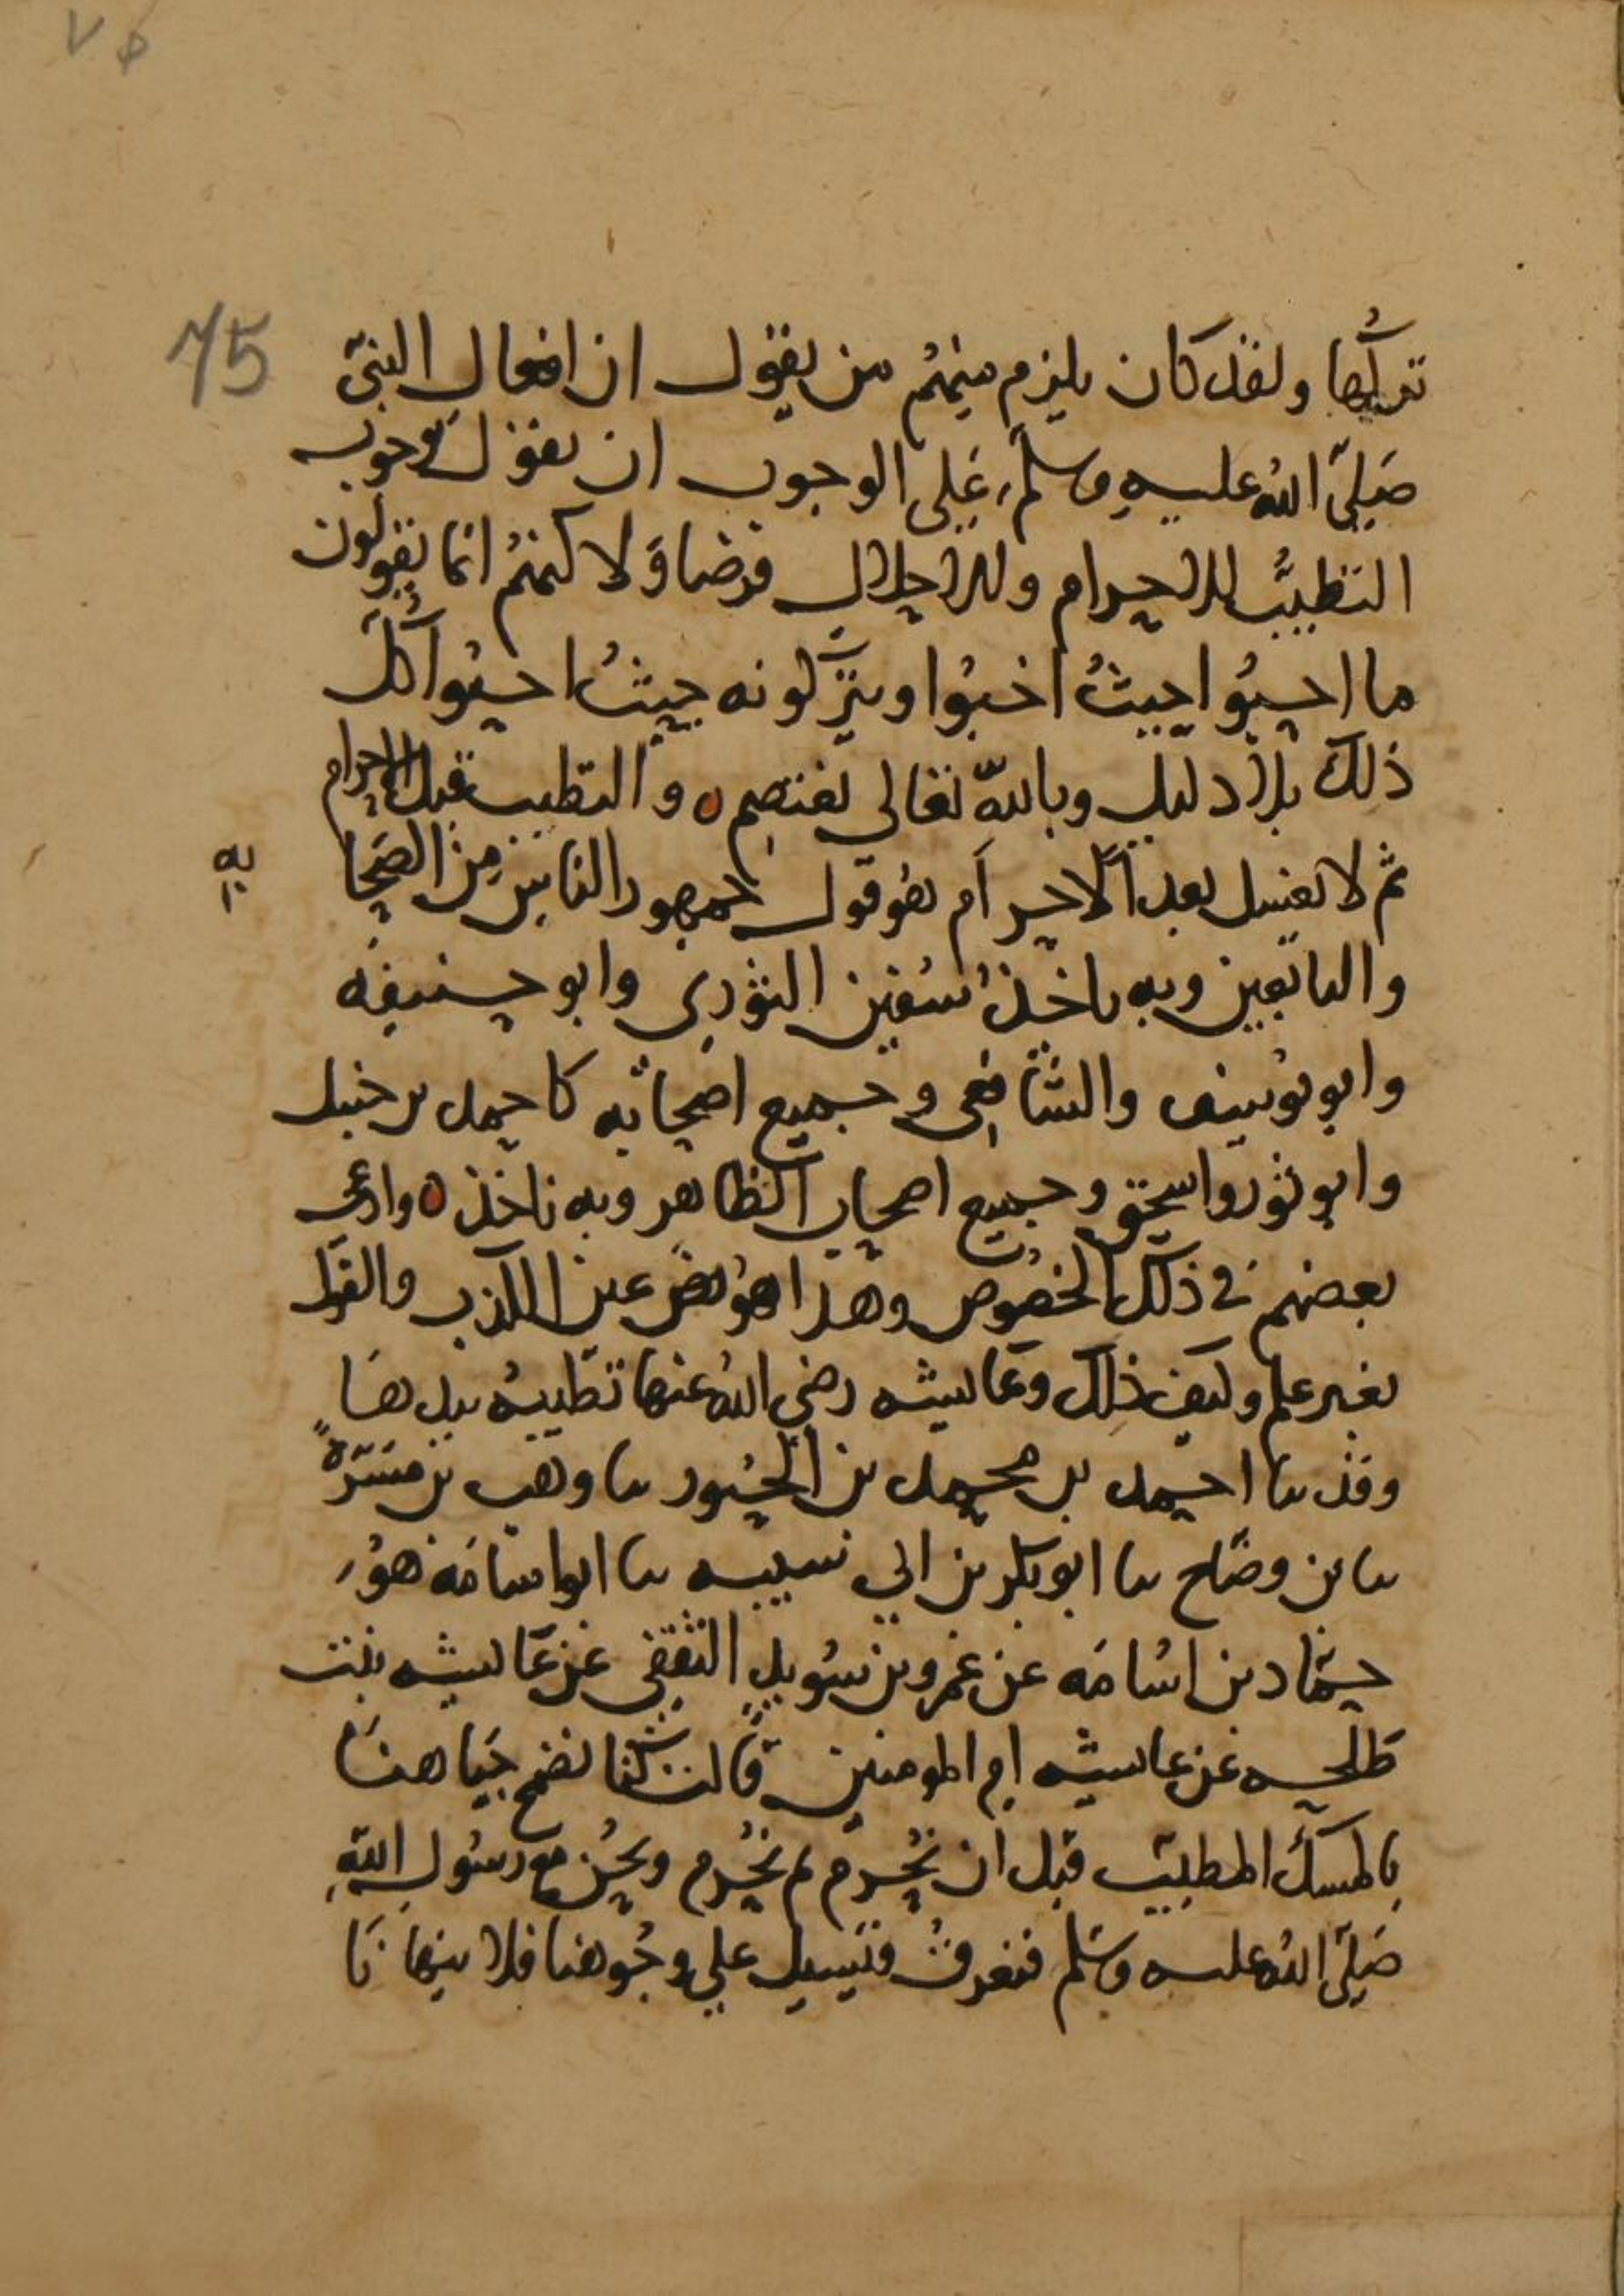 ٧٥
75
تركها ولقد كان يلزم منهم من يقول ان افعال النبي
صلى الله عليه وسلم على الوجوب ان يقول بوجوب
التطيب للاحرام وللاحلال فرضا ولاكنهم انما يقولون
ما احبوا حيث احبوا ويتركونه حيث احبوا كل
ذلك بلا دليل وبالله تعالى نعتصم ه والتطيب قبل الاحرام
ثم لا يغسل بعد الاحرام هو قول جمهور الناس من الصحا
به
والتابعين وبه ياخذ سفين الثوري وابو حنيفه
وابو يوسف والشافعي وجميع اصحابه كاحمد بن حنبل
وابو ثور واسحق وجميع اصحاب الظاهر وبه ناخذ ه وادعى
بعضهم في ذلك الخصوص وهذا هو عين الكذب والقول
بغير علم وكيف ذلك وعايشه رضي الله عنها تطيبه بيدها
وقد سا احمد بن محمد بن الجسور سا وهب بن مسرة
سا بن وضاح سا ابو بكر بن ابي شيبه سا ابو اسامه هو
حماد بن اسامه عن عمرو بن سويد الثقفي عن عايشه بنت
طلحه عن عايشه ام المومنين قالت كنا نضمخ جباهنا
بالمسك المطيب قبل ان نحرم ثم نحرم ونحن مع رسول الله
صلى الله عليه وسلم فنعرق فتسيل على وجوهنا فلا ينهانا